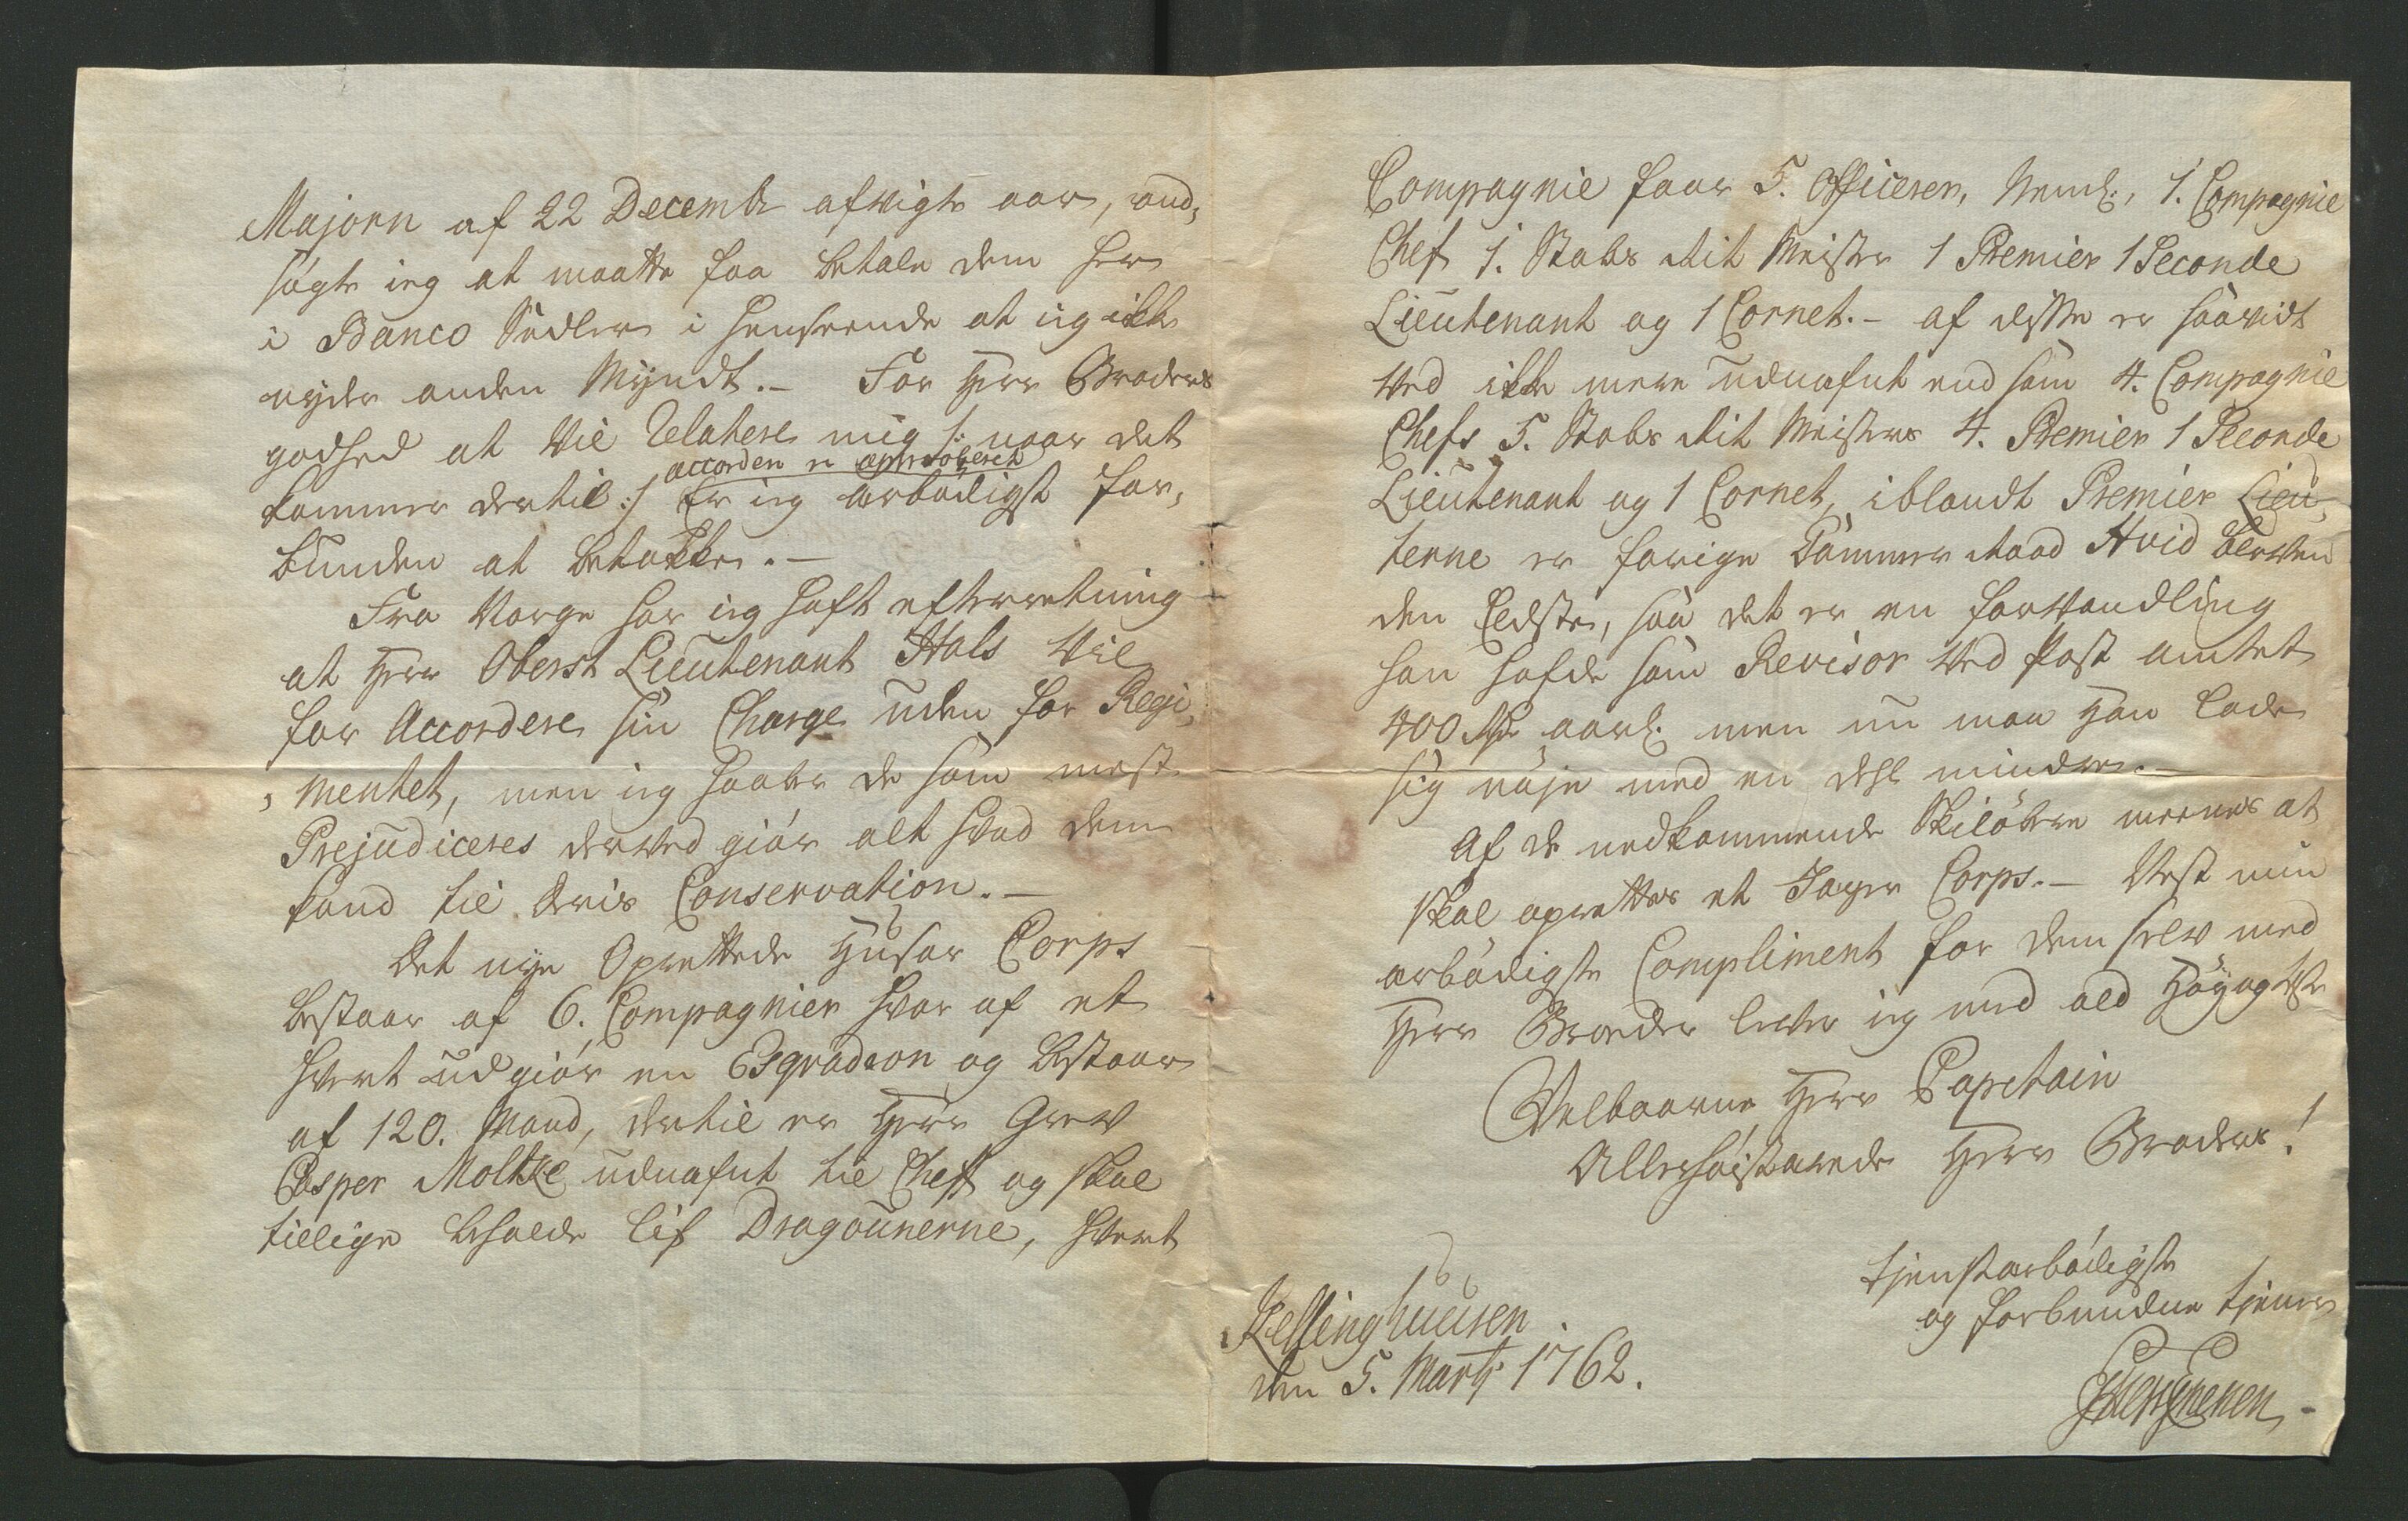 Majoren af 22 Decembr afvigte aar, and,
søgte ieg at maatte faa betale dem her
i Banco Sedler i henseende at ieg ikke
nyder anden Myndt. – For Herr Broders
godhed at vil Relatere mig /: naar det
accorden er approberet
kommer dertil :/ Er ieg ærbödigst for,
bunden at betakke. –
Fra Norge har ieg haft efterretning
at Herr Oberst Lieutenant Hals vil
for Accordere sin Charge uden for Regi,
, mentet, men ieg haaber de som mest
Prejudiceres derved giör alt hvad dem
kand til deris Conservation. –
Det nye Oprettede Husar Corps
bestaar af 6. Compagnier hvor af et
hvert udgiör en Esqvadron og bestaar
af 120. Mand, dertil er Herr Grev
Casper Moltke udnefnt til Cheff og skal
tillige beholde Lif Dragounerne, hvert
Compagnie faar 5. Officerer, Neml: 1. Compagnie
Chef 1. Stabs Rit Mester 1 Premier 1 Seconde
Lieutenant og 1 Cornet. – af disse er saavidt
ved ikke mere udnefnt end som 4. Compagnie
Chefs 5. Stabs Rit Mesters 4. Premier 1 Seconde
Lieutenant og 1 Cornet, iblandt Premier Lieu,
tenne er forige Kammer Raad Hvid bleven
den Eldste, saa det er en forvandling
han hafde som Revisor ved Post amtet
400 Rdr aarl: men nu maa Han lade
sig nöje med en deel mindre. –
Af de nedkommende Skilöbere meenes at
skal oprettes et Jæger Corps. – Nest min
ærbödigste Compliment for dem selv med
Herr Broder lever ieg med all Höyagtelse
Velbaarne Herr Capitain
Allerhöistærede Herr Broders!
tienstærbödigste
og forbundne tiener
Kellinghusen
den 5. Martj 1762.